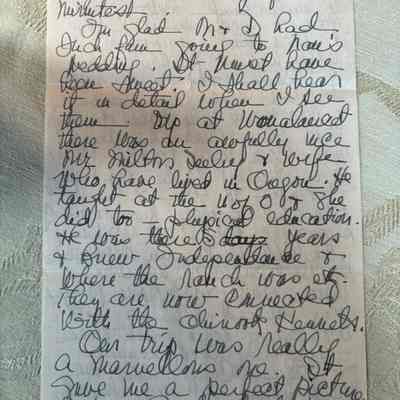 I'm glad M & D had
such fun going to Nan's
wedding. It must have
been sweet. I shall hear
it in detail when I see
them. Up at Wonalancet
there was an awfully nice
Mr Milton Seeley & wife
who have lived in Oregon. He
taught at the U of O & she
did too – physical education.
He was there 3 days years
& knew Independance &
where the ranch was etc.
They are now connected
with the chinook Kennels.
Our trip was really
a marvellous one. It
gave me a perfect picture